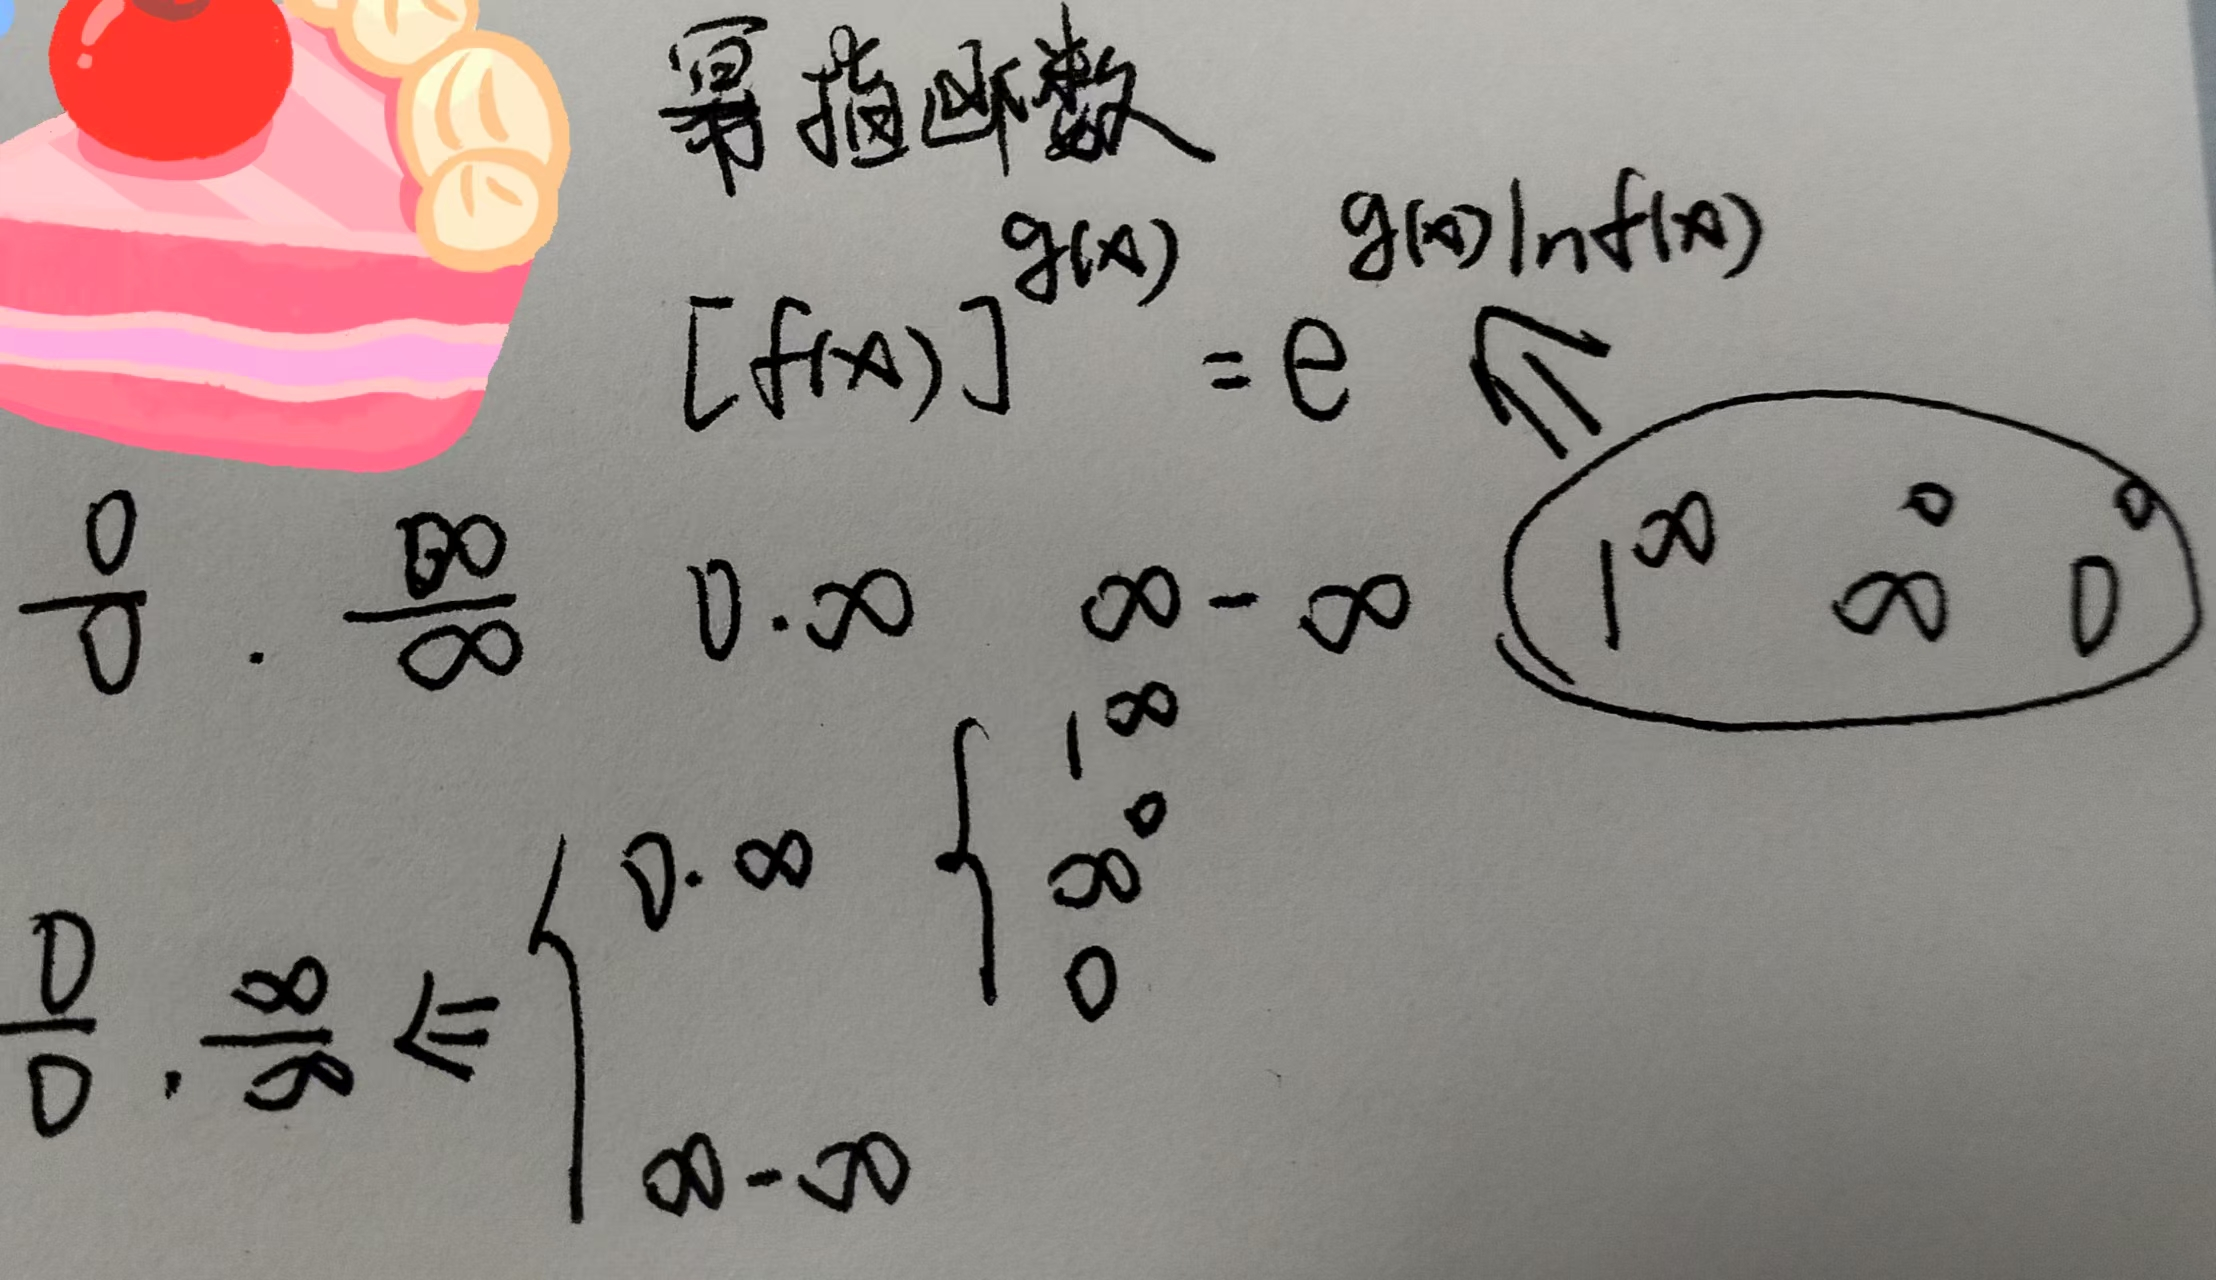 幂指断数
[f(x)]^{g(x)} = e^{g(x)lnf(x)}
0/0 . ∞/∞ 0·∞ ∞-∞ 1^∞ ∞^0 0^0
0/0 . ∞/∞ ⇐ { 0·∞ { 1^∞
∞^0
0
∞-∞